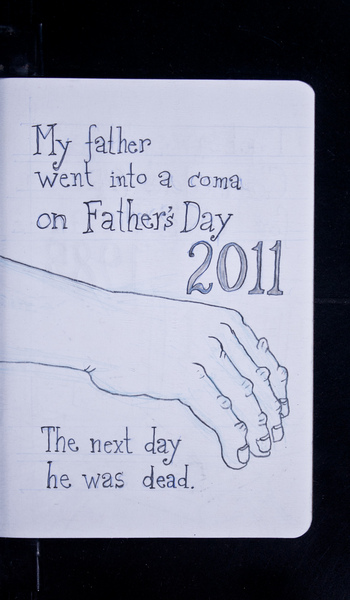 My father
went into a coma
on Father's Day
2011
The next day
he was dead.